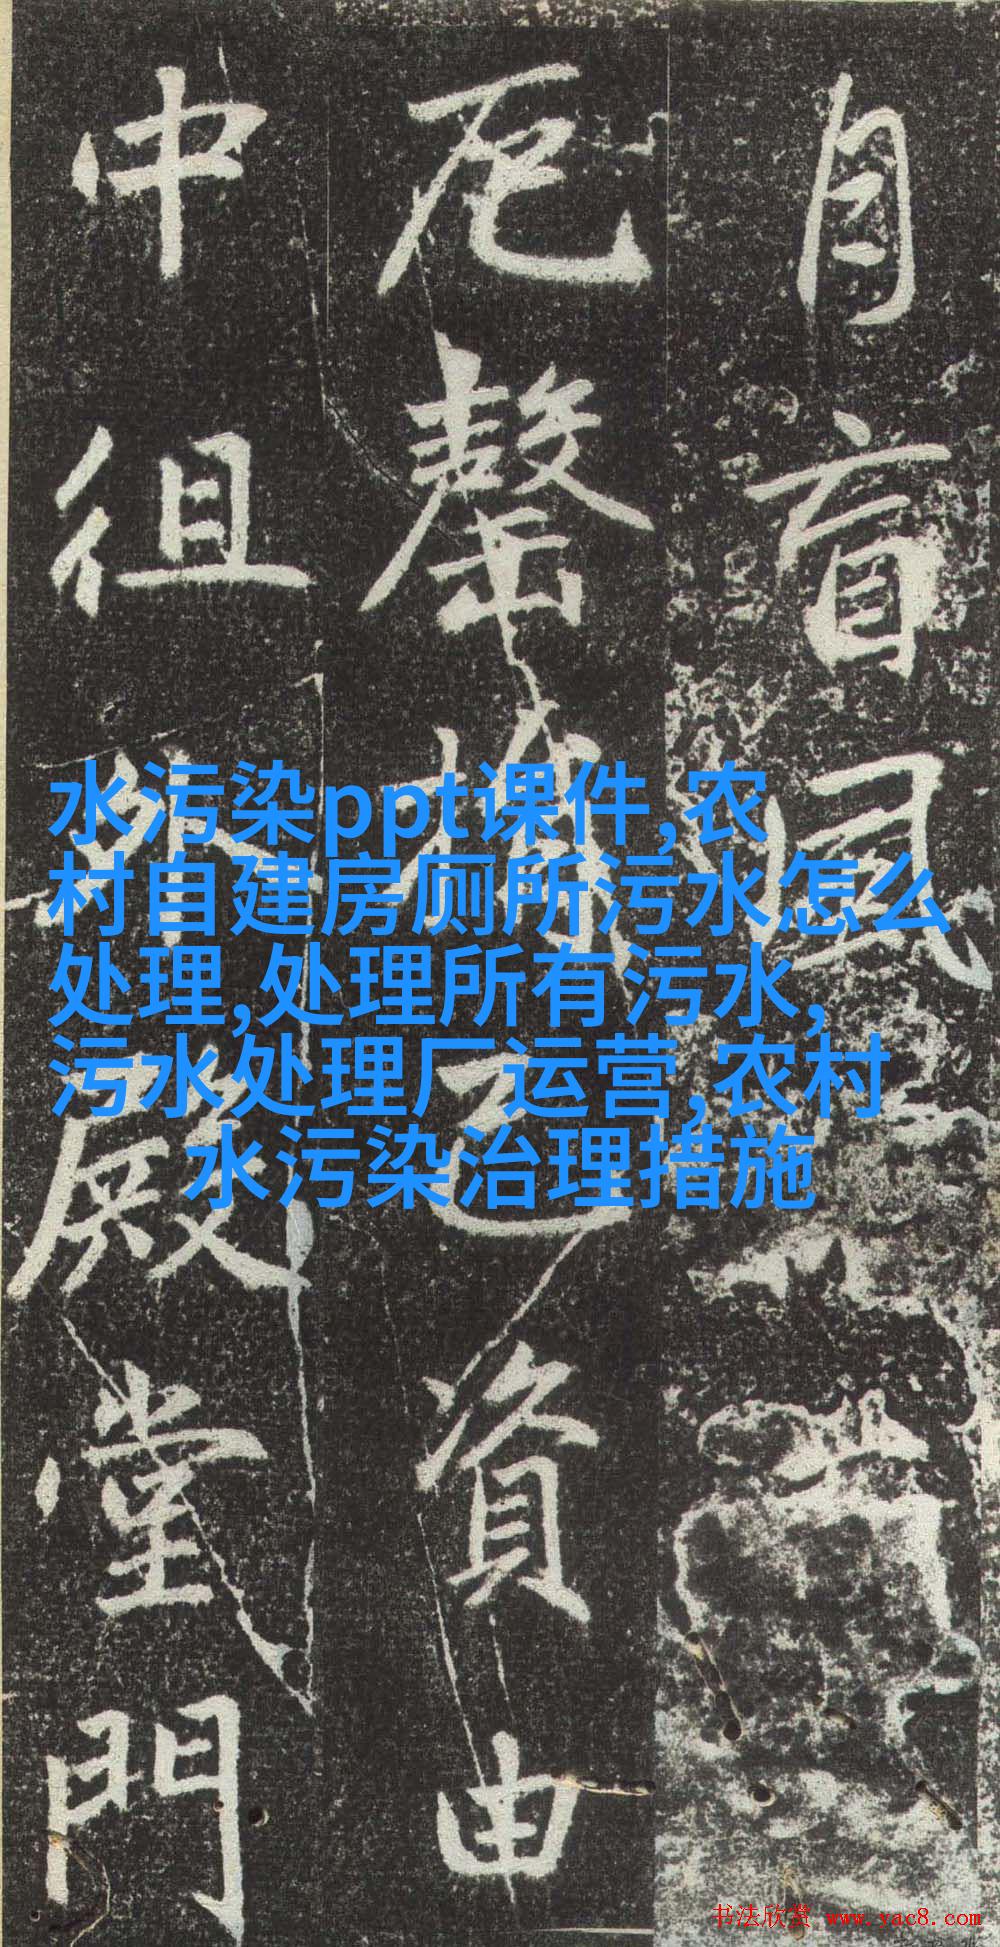 盲風
厄罄資由
中徂殿堂門
水污染ppt课件,农
村自建房厕所污水怎么
处理,处理所有污水,
污水处理厂运营,农村
水污染治理措施
书法欣赏 www.yac8.com